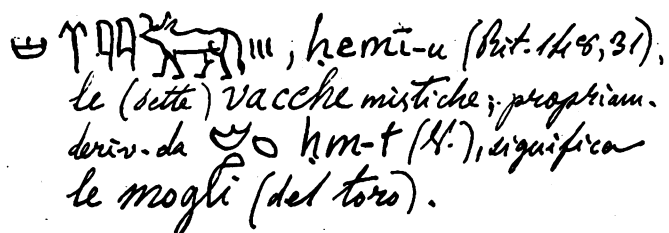 , ḥemī-u (Rit. 148, 31),
le (sette) vacche mistiche; propriam.
deriv. da ḥm-t (V.), significa
le mogli (del toro).